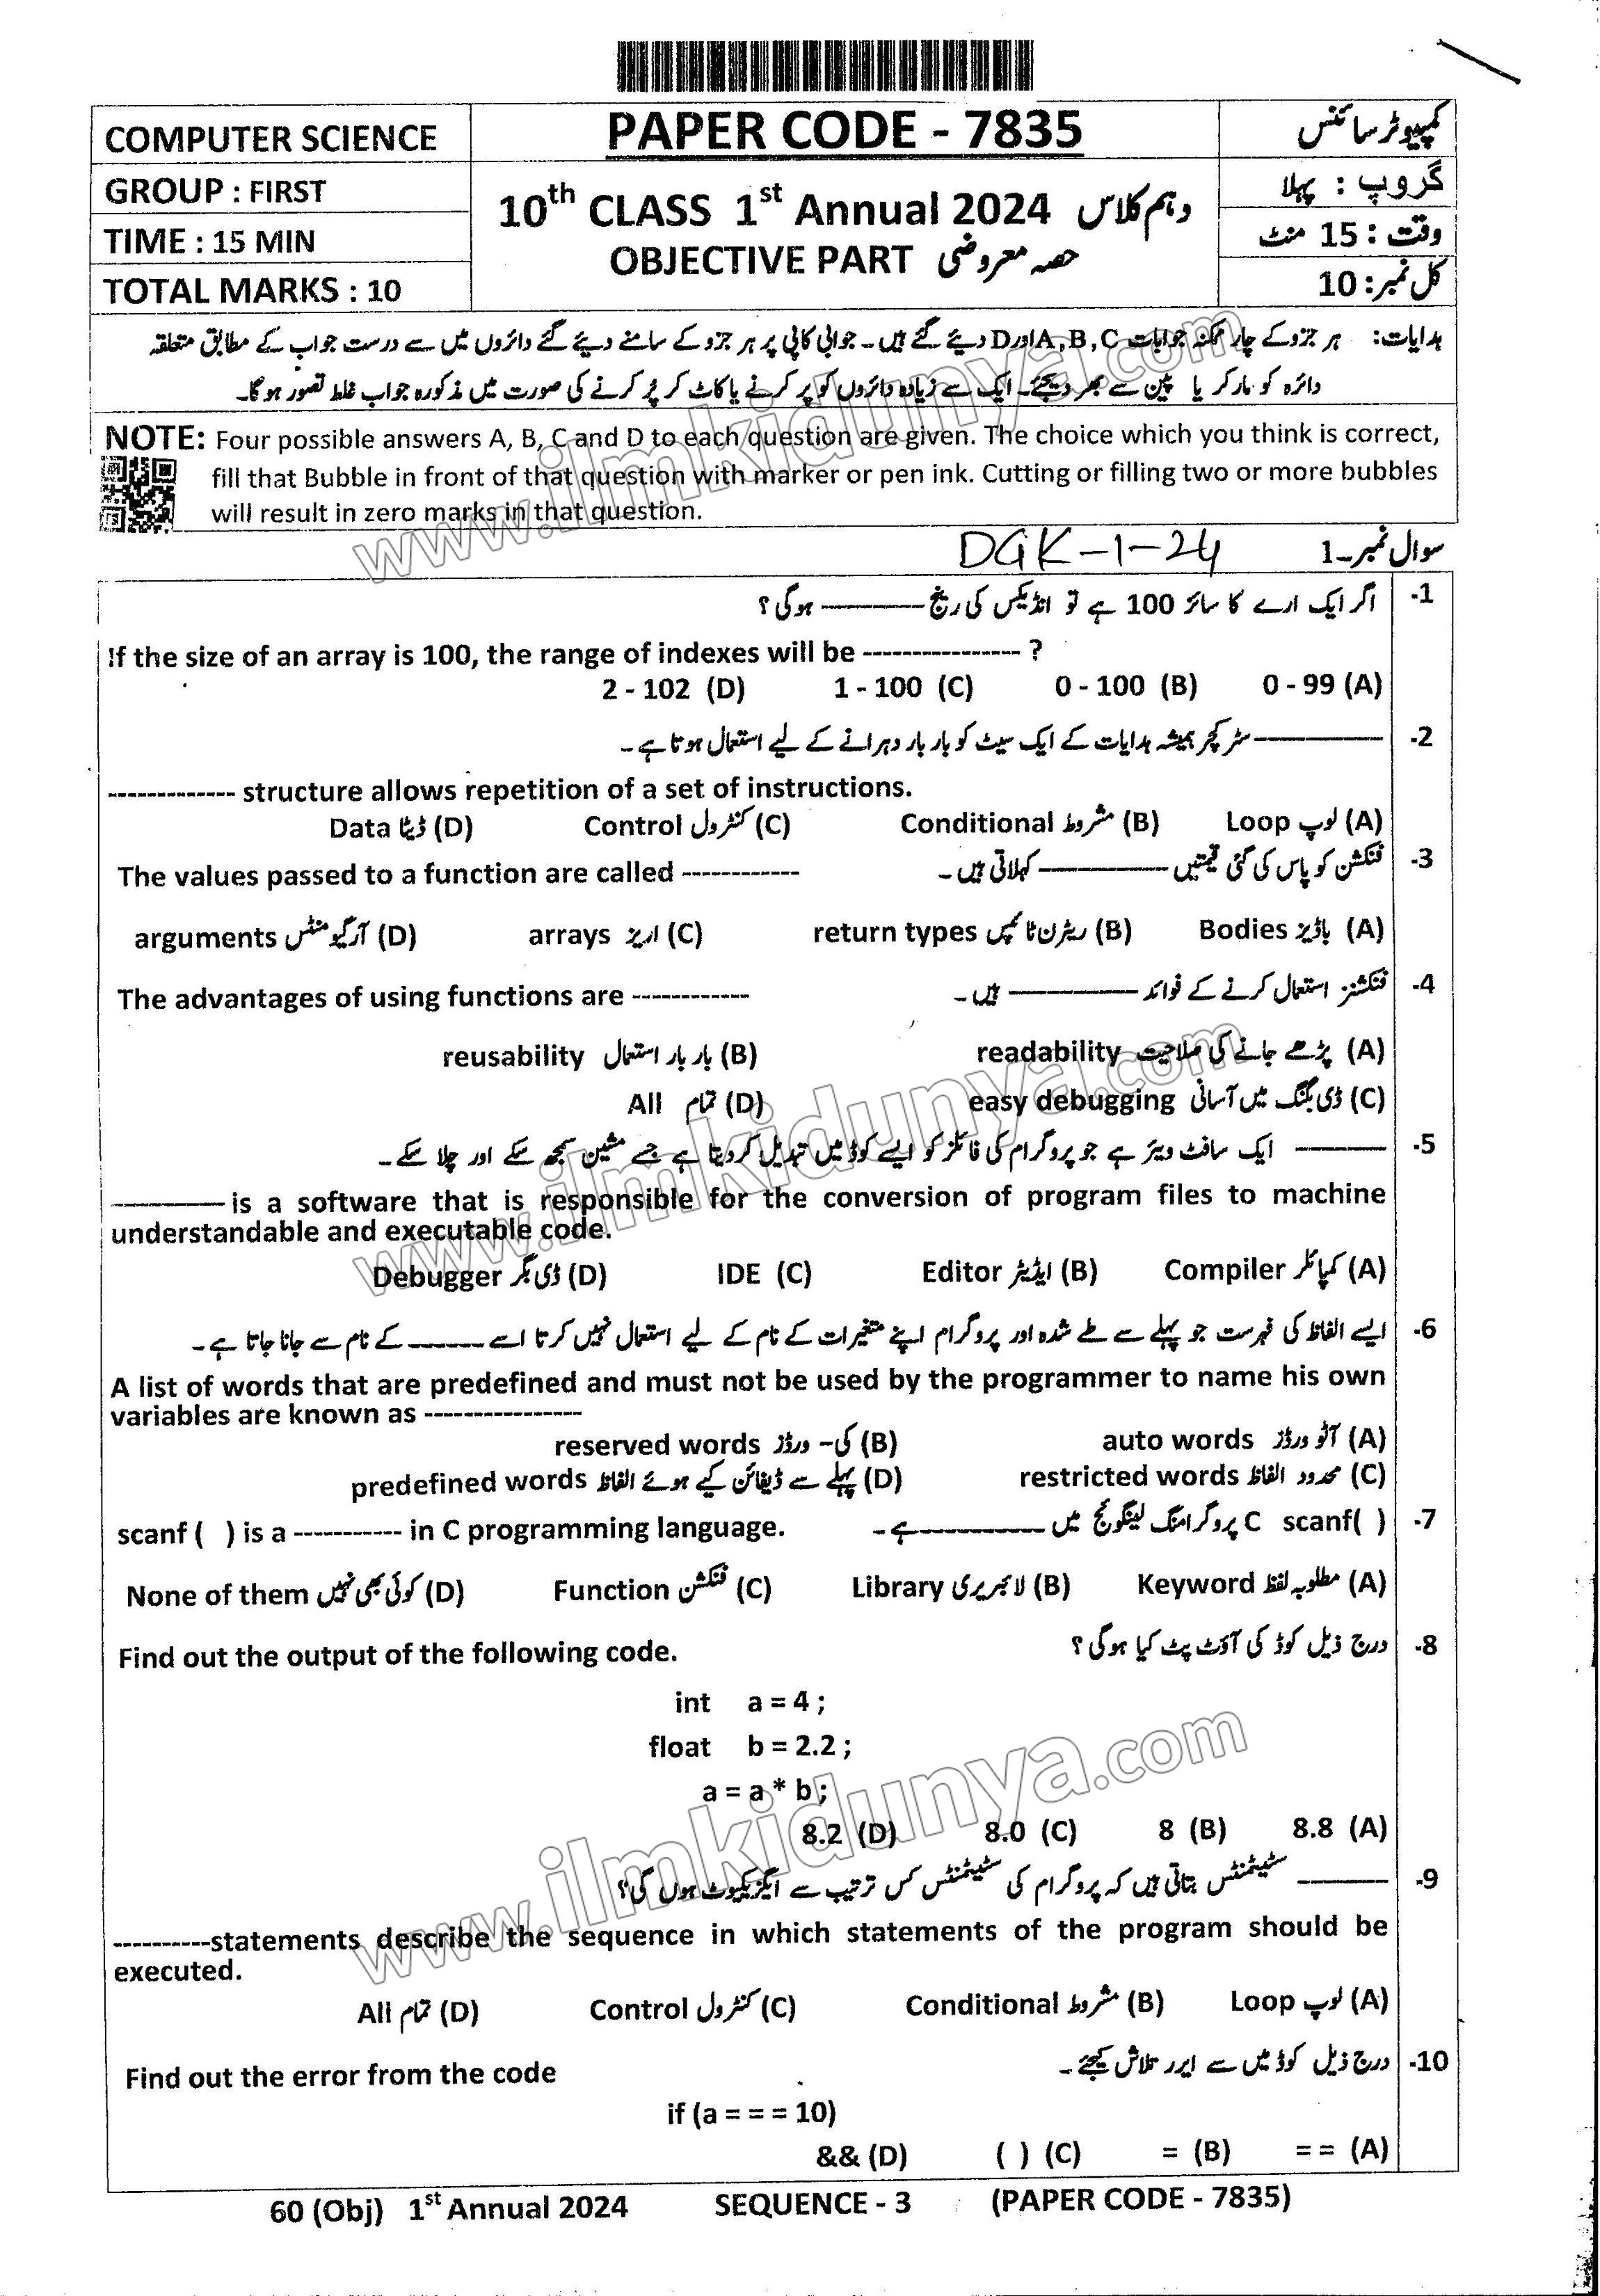 COMPUTER SCIENCE
PAPER CODE - 7835
کمپیوٹر سائنس
GROUP : FIRST
گروپ : پہلا
10th CLASS 1st Annual 2024 دہم کلاس
TIME : 15 MIN
وقت : 15 منٹ
OBJECTIVE PART حصہ معروضی
TOTAL MARKS : 10
کل نمبر: 10
ہدایات: ہر جزو کے چار ممکنہ جوابات A,B,C اور D دیئے گئے ہیں۔ جوابی کاپی پر ہر جزو کے سامنے دیئے گئے دائروں میں سے درست جواب کے مطابق متعلقہ
دائرہ کو مارکر یا پین سے بھر دیجئے۔ ایک سے زیادہ دائروں کو پر کرنے یا کاٹ کر پُر کرنے کی صورت میں مذکورہ جواب غلط تصور ہوگا۔
NOTE: Four possible answers A, B, C and D to each question are given. The choice which you think is correct,
fill that Bubble in front of that question with marker or pen ink. Cutting or filling two or more bubbles
will result in zero marks in that question.
DGK-1-24
سوال نمبر 1۔
-1 اگر ایک ارے کا سائز 100 ہے تو انڈیکس کی رینج ---------- ہوگی؟
If the size of an array is 100, the range of indexes will be ---------------- ?
2 - 102 (D) 1 - 100 (C) 0 - 100 (B) 0 - 99 (A)
-2 ---------- سٹرکچر ہمیشہ ہدایات کے ایک سیٹ کو بار بار دہرانے کے لیے استعمال ہوتا ہے۔
------------- structure allows repetition of a set of instructions.
Data ڈیٹا (D) Control کنٹرول (C) Conditional مشروط (B) Loop لوپ (A)
-3 فنکشن کو پاس کی گئی قیمتیں ---------- کہلاتی ہیں۔
The values passed to a function are called ------------
arguments آرگیومنٹس (D) arrays اریز (C) return types ریٹرن ٹائپس (B) Bodies باڈیز (A)
-4 فنکشنز استعمال کرنے کے فوائد ---------- ہیں۔
The advantages of using functions are ------------
reusability بار بار استعمال (B) readability پڑھے جانے کی صلاحیت (A)
All تمام (D) easy debugging ڈی بگنگ میں آسانی (C)
-5 ---------- ایک سافٹ ویئر ہے جو پروگرام کی فائلز کو ایسے کوڈ میں تبدیل کر دیتا ہے جسے مشین سمجھ سکے اور چلا سکے۔
---------- is a software that is responsible for the conversion of program files to machine
understandable and executable code.
Debugger ڈی بگر (D) IDE (C) Editor ایڈیٹر (B) Compiler کمپائلر (A)
-6 ایسے الفاظ کی فہرست جو پہلے سے طے شدہ اور پروگرام اپنے متغیرات کے نام کے لیے استعمال نہیں کرتا اسے ------ کے نام سے جانا جاتا ہے۔
A list of words that are predefined and must not be used by the programmer to name his own
variables are known as ----------------
reserved words کی- ورڈز (B) auto words آٹو ورڈز (A)
predefined words پہلے سے ڈیفائن کیے ہوئے الفاظ (D) restricted words محدود الفاظ (C)
-7 scanf( ) C پروگرامنگ لینگوئج میں ---------- ہے۔
scanf ( ) is a ----------- in C programming language.
None of them کوئی بھی نہیں (D) Function فنکشن (C) Library لائبریری (B) Keyword مطلوبہ لفظ (A)
-8 درج ذیل کوڈ کی آؤٹ پٹ کیا ہوگی؟
Find out the output of the following code.
int a = 4 ;
float b = 2.2 ;
a = a * b ;
8.2 (D) 8.0 (C) 8 (B) 8.8 (A)
-9 ---------- سٹیٹمنٹس بتاتی ہیں کہ پروگرام کی سٹیٹمنٹس کس ترتیب سے ایگزیکیوٹ ہوں گی؟
----------statements describe the sequence in which statements of the program should be
executed.
All تمام (D) Control کنٹرول (C) Conditional مشروط (B) Loop لوپ (A)
-10 درج ذیل کوڈ میں سے ایرر تلاش کیجئے۔
Find out the error from the code
if (a = = = 10)
&& (D) ( ) (C) = (B) = = (A)
60 (Obj) 1st Annual 2024 SEQUENCE - 3 (PAPER CODE - 7835)
www.ilmkidunya.com
www.ilmkidunya.com
www.ilmkidunya.com